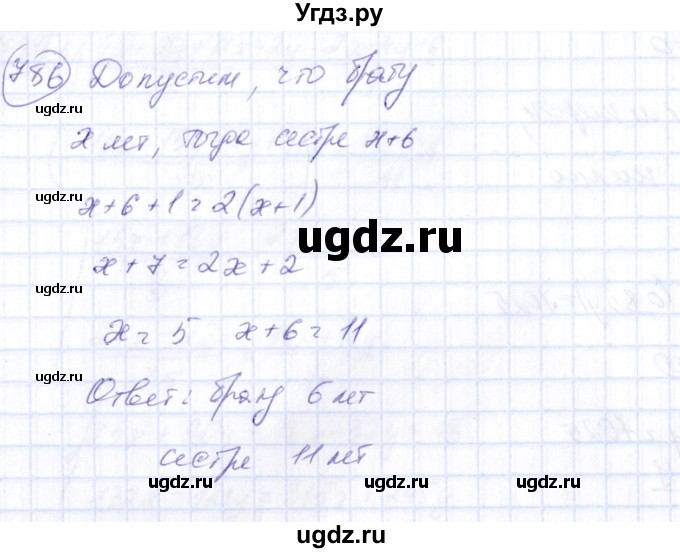 Угдз.ру
786 Допустим, что брату
ugdz.ru ugdz.ru
x лет, тогда сестре x+6
x+6+1=2(x+1)
ugdz.ru ugdz.ru
ugdz.ru
x+7=2x+2
ugdz.ru ugdz.ru
x=5 x+6=11
ugdz.ru ugdz.ru
Ответ: брату 6 лет
сестре 11 лет
ugdz.ru ugdz.ru ugdz.ru
ugdz.ru